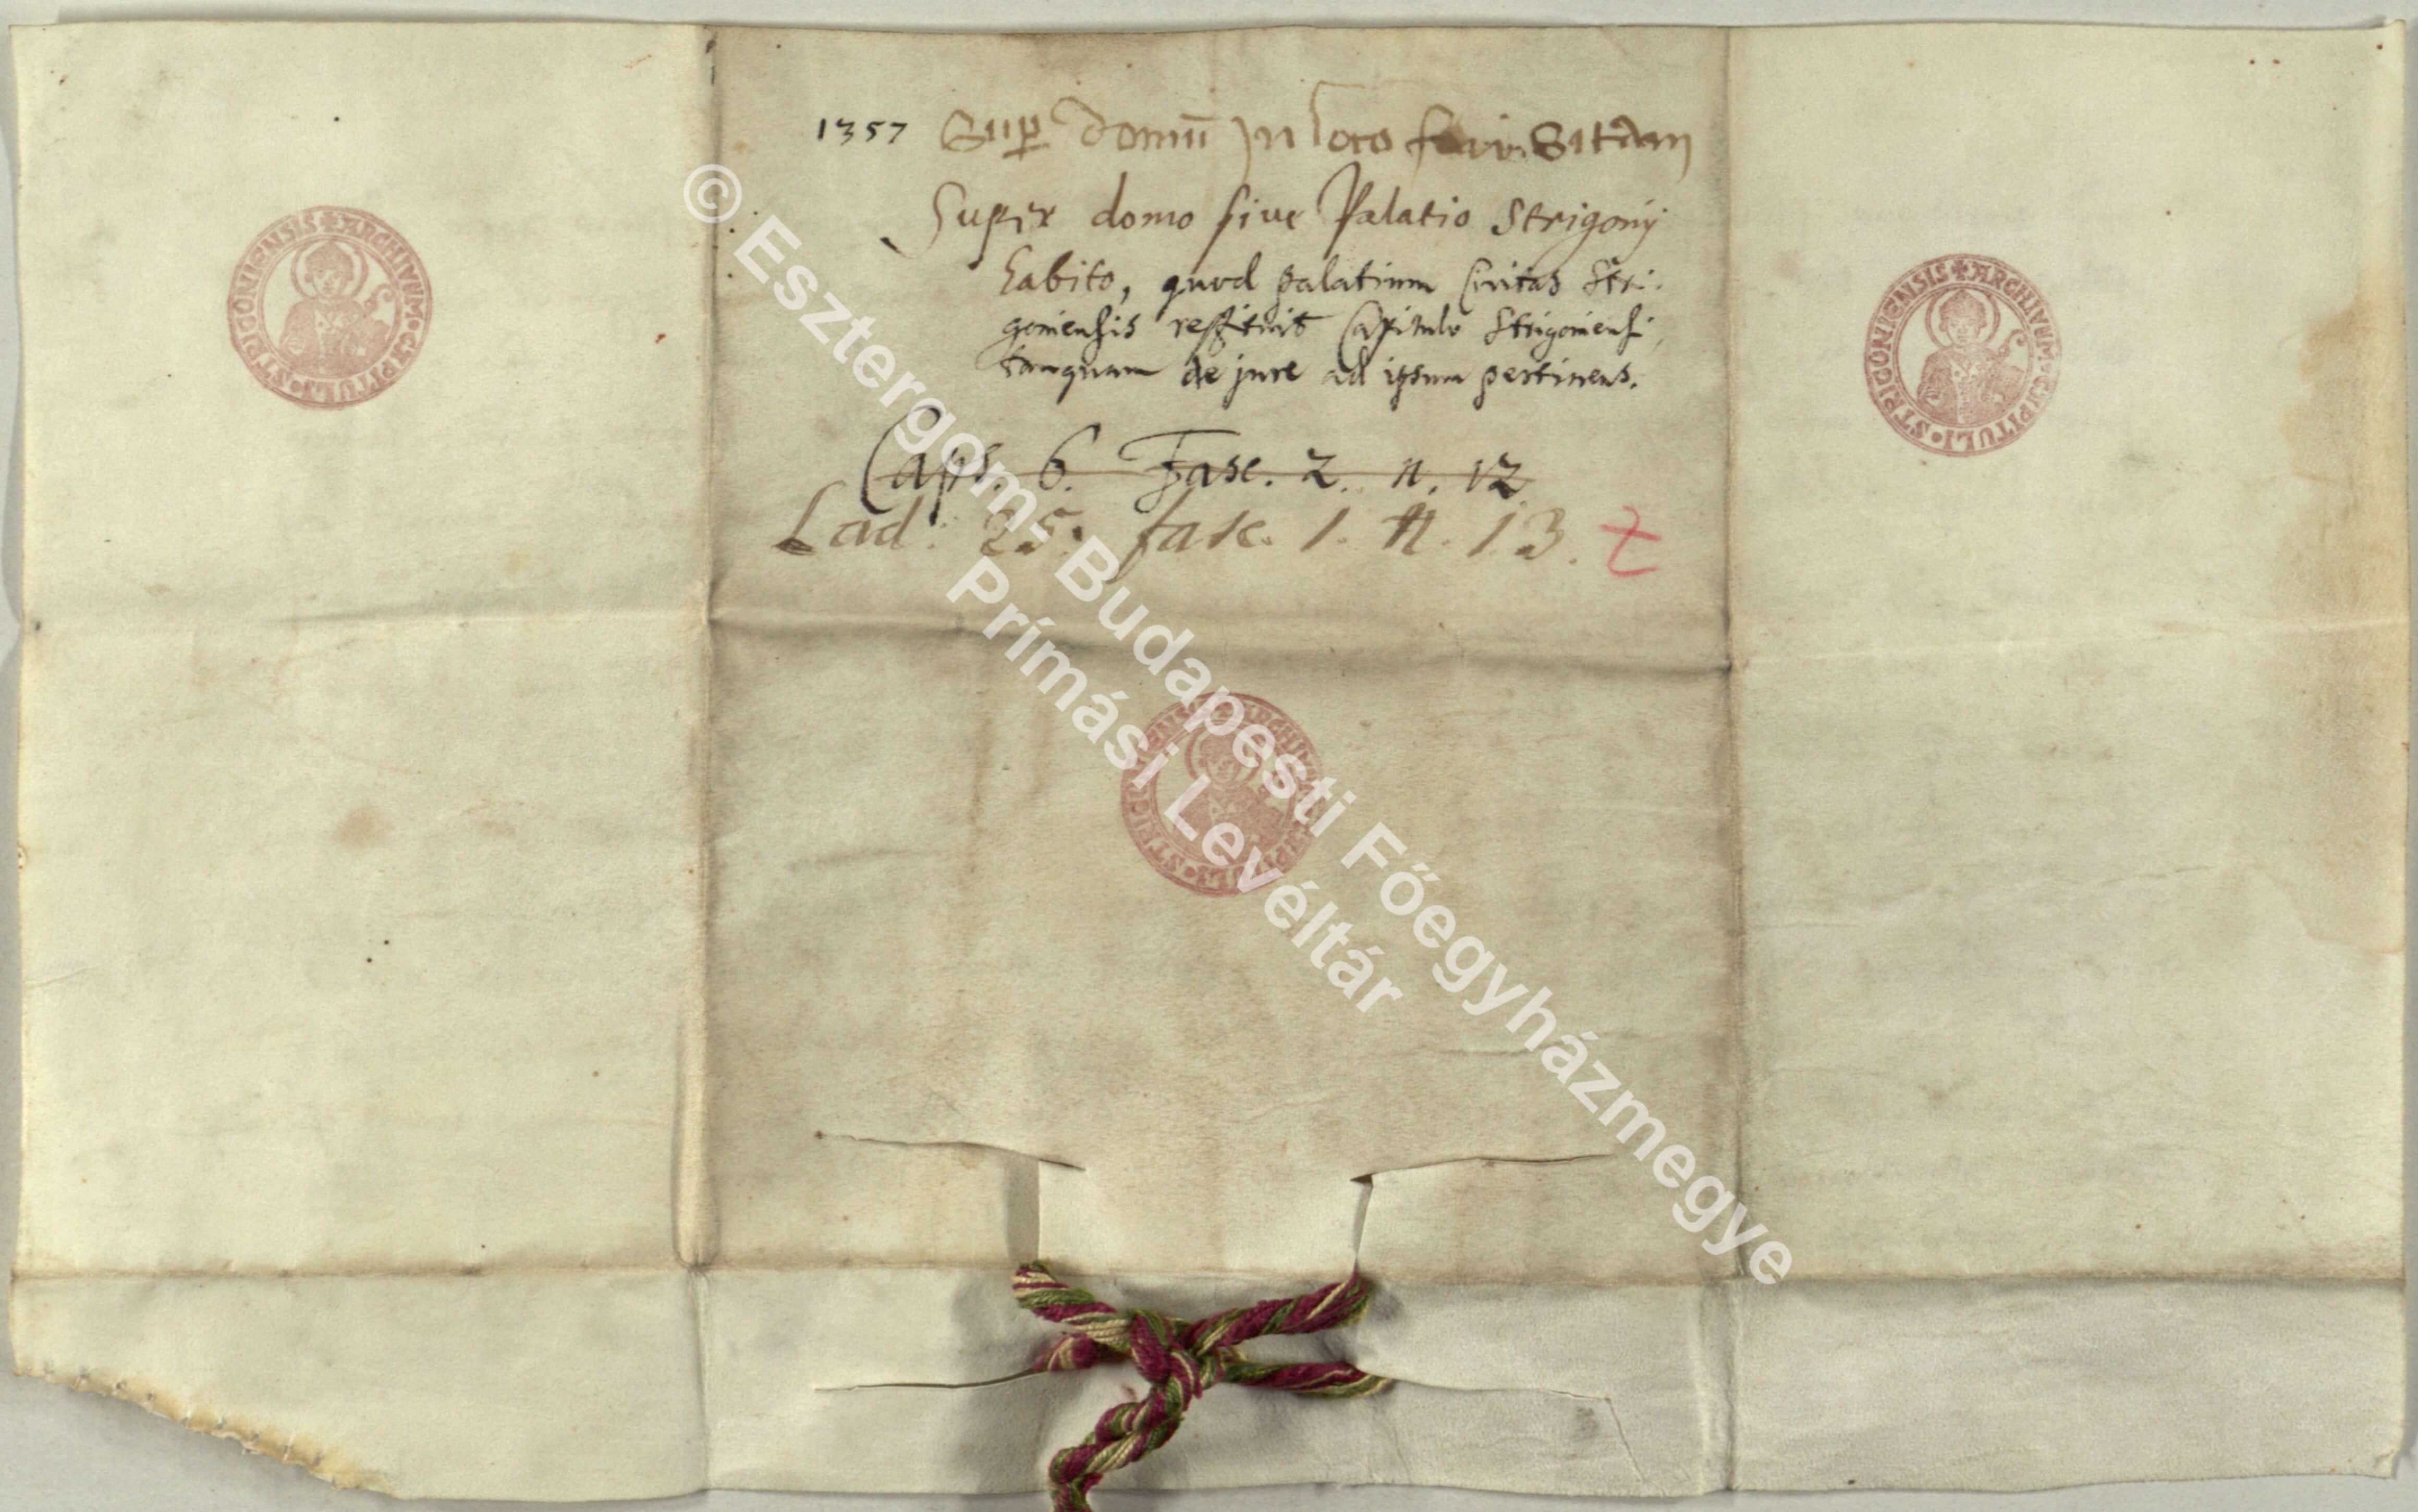 1357 Sup domū In loco fori Sitam
Super domo sive Palatio Strigonij
habito, quod palatium Civitas Stri-
goniensis restituit Capitulo Strigoniensi,
tanquam de jure ad ipsum pertinens.
Caps. 6. Fasc. 2. n. 12
Lad. 25. fasc. 1. n. 13.
ARCHIVUM CAPITULI STRIGONIENSIS
ARCHIVUM CAPITULI STRIGONIENSIS
© Esztergom- Budapesti Főegyházmegye
Prímási Levéltár